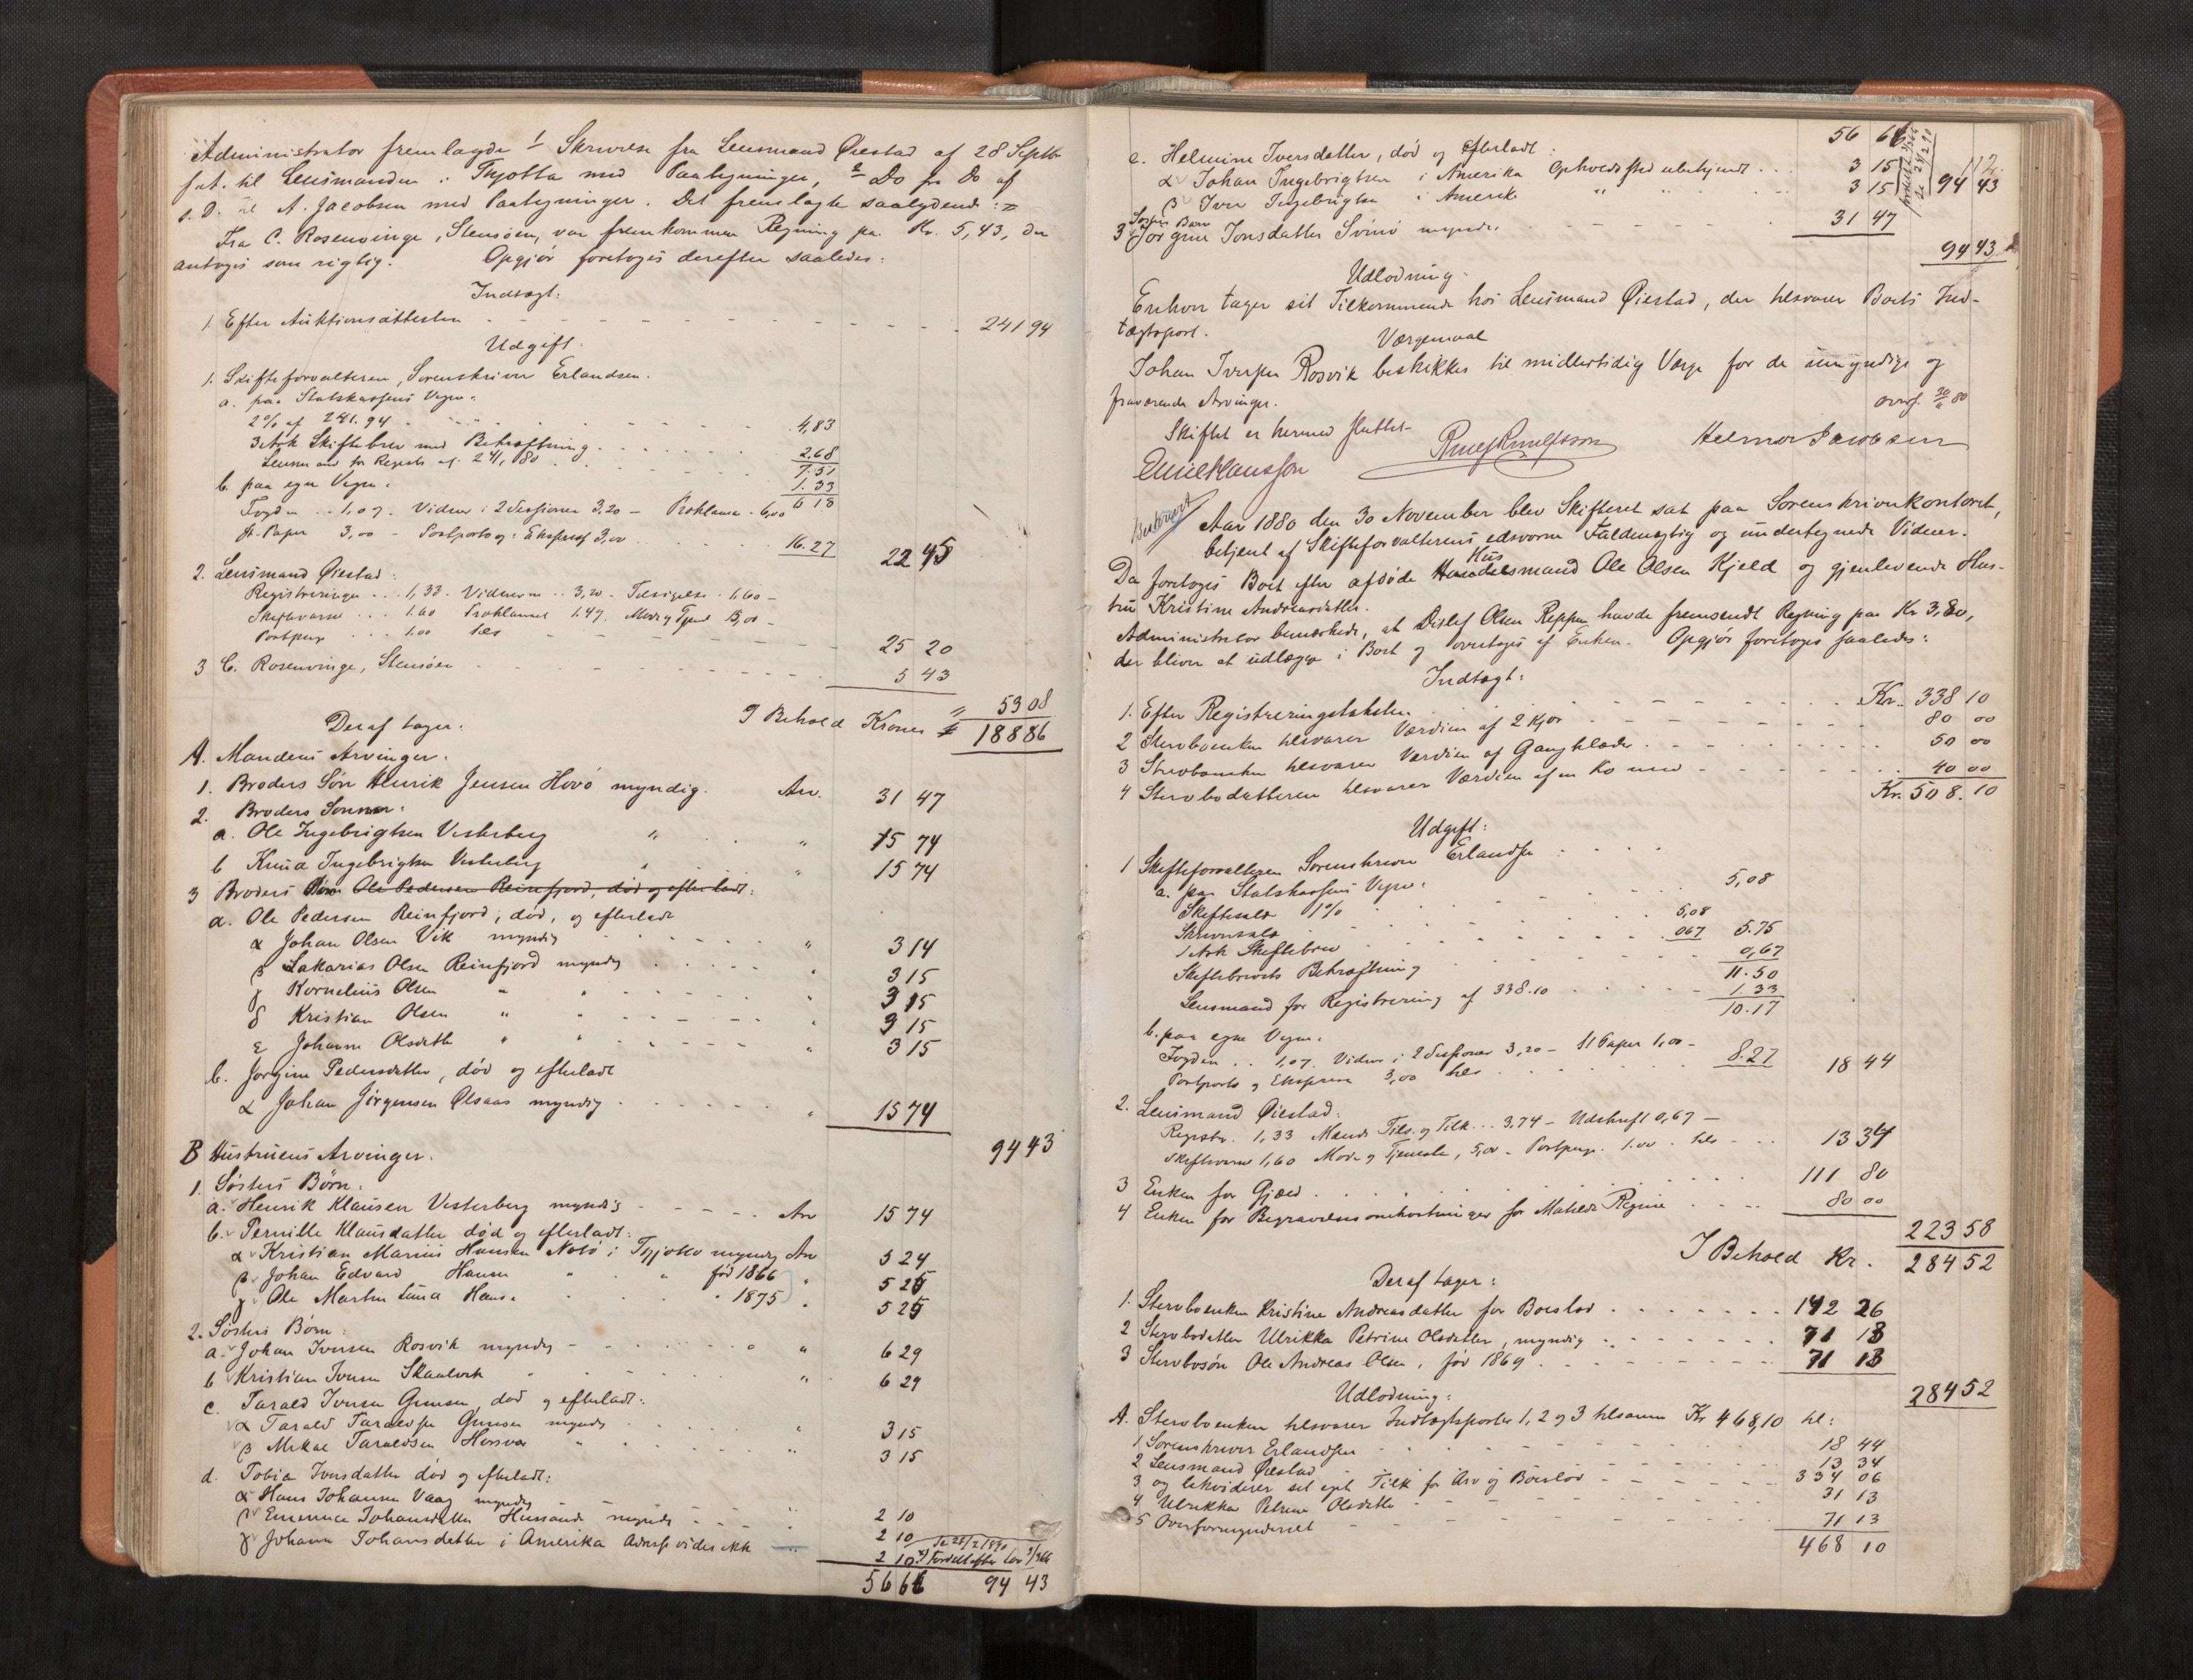 Administrator fremlagde 1 Skrivelse fra Lensmand Øiestad af 28 Septbr
f.A. til Lensmanden i Thjotta med Paategninger, 2 Do fra Do af
s. D. til A. Jacobsen med Paategninger. Det fremlagte saalydende:
Fra C. Rosenvinge, Stensøen, var fremkommen Regning paa Kr. 5,43, der
antoges som rigtig. Opgjør foretoges derefter saaledes:
Indtægt:
1. Efter Auktionsattesten 241 94
Udgift.
1. Skifteforvalteren, Sorenskriver Erlandsen.
a. paa Statskassens Vegne.
2% af 241.94 4,83
3 Ark Skiftebrev med Bekræftning 2.68
7.51
Lensmand for Registr. af 241,80 1.33
b. paa egne Vegne. 6 18
Fogden 1,07. Vidner i 2 Sessioner 3,20 – Proklama 6,00
st. Papir 3,00 – Postporto og Ekspress 3,00 16.27 22 45
2. Lensmand Øiestad:
Registreringen 1,33. Vidnerne 3,20. Tilsigelse 1,60 –
Skiftevarsel 1.60 Proklamet 1.47. Møde og Tjen 15,00 –
Postpenge 1.00 tils 25 20
3 C. Rosenvinge, Stensøen 5 43
" 53 08
I Behold Kroner 188 86
Deraf tager:
A. Mandens Arvinger.
1. Broders Søn Henrik Jensen Hovø myndig. Arv. 31 47
2. Broders Sønner:
a. Ole Ingebrigtsen Vesterberg " " 15 74
b Knud Ingebrigtsen Vesterberg " " 15 74
3 Broders Børn Ole Pedersen Reinfjord, død og efterladt:
a. Ole Pedersen Reinfjord, død, og efterladt
α Johan Olsen Vik myndig " 3 14
β Zakarias Olsen Reinfjord myndig " 3 15
γ Kornelius Olsen " " 3 15
δ Kristian Olsen " " 3 15
ε Johanna Olsdatter " " 3 15
b. Jørgine Pedersdatter, død og efterladt
α Johan Jørgensen Olsaas myndig " 15 74
94 43
B Hustruens Arvinger.
1. Søsters Børn:
a. Henrik Klausen Vesterberg myndig Arv 15 74
b. Pernille Klausdatter død og efterladt:
α Kristian Marius Hansen Nolø i Thjotta myndig Arv 5 24
β Johan Edvard Hansen " " fød 1866 " 5 25
γ Ole Martin Hans. " " 1875 " 5 25
2. Søsters Børn:
a. Johan Iversen Rosvik myndig " 6 29
b Kristian Iversen " " 6 29
c. Tarald Iversen død og efterladt:
α Tarald Taraldsen myndig " 3 15
β Mikal Taraldsen " " 3 15
d. Tobia Iversdatter død og efterladt:
α Hans Johansen Vaag myndig " 2 10
β Johansdatter myndig 2 10
γ Johanna Johansdatter i Amerika Adresse vides ikke 2 10
56 66 94 43
56 66
e. Helmine Iversdatter, død og efterladt:
α Johan Ingebrigtsen i Amerika Opholdssted ubekjendt 3 15
β Iver Ingebrigtsen i Amerika " " 3 15 94 43
3 Søsters Barn
Jørgine Jonsdatter Svinø myndig 31 47
94 43
Udlodning.
Enhver tager sit Tilkommende hos Lensmand Øiestad, der tilsvarer Boets Ind-
tægtspost.
Værgemaal
Johan Iversen Rosvik beskikkes til midlertidig Værge for de umyndige og
fraværende Arvinger.
Skiftet er hermed sluttet.
Emil Hansson Helmer Jacobsen
Aar 1880 den 30 November blev Skifteret sat paa Sorenskriverkontoret,
betjent af Skifteforvalterens edsvorne Fuldmægtig og undertegnede Vidner.
Da foretoges Boet efter afdøde Husmand Ole Olsen Kjeld og gjenlevende Hus-
tru Kristine Andreasdatter.
Administrator bemærkede, at Ditlef Olsen Reppen havde fremsendt Regning paa Kr 3,80,
der bliver at udlægge i Boet og overtoges af Enken. Opgjør foretoges saaledes:
Indtægt:
1. Efter Registreringstaksten Kr. 338 10
2 Stervboenken tilsvarer Værdien af 2 Kjør 80 00
3 Stervboenken tilsvarer Værdien af Gangklæder 50 00
4 Stervbodatteren tilsvarer Værdien af en Ko med 40 00
Kr. 508. 10
Udgift:
1 Skifteforvalteren Sorenskriver Erlandsen
a. paa Statskassens Vegne:
Skiftesalær 1% 5,08
Skriversalær 5,08
1 Ark Skiftebrev 067 5.75
Skiftebrevets Bekræftning 0,67
11.50
Lensmand for Registrering af 338.10 1.33
10.17
b. paa egne Vegne.
Fogden 1,07. Vidner i 2 Sessioner 3,20 – st Papir 1,00 –
Postporto og Ekspress 3,00 tils 8.27 18 44
2. Lensmand Øiestad:
Registr. 1,33 Mænds Tils. og Tilk. 3,74 – Udskrift 0,67 –
Skiftevarsel 1,60 Møde og Tjeneste, 5,00 – Postpenge 1.00 – tils 13 34
3 Enken for Gjæld 111 80
4 Enken for Begravelsesomkostninger for Mathilde Regine 80 00
223 58
I Behold Kr. 284 52
Deraf tager:
1. Stervboenken Kristine Andreasdatter for Boeslod 142 26
2 Stervbodatter Ulrikka Petrine Olsdatter, myndig 71 13
3 Stervbosøn Ole Andreas Olsen, fød 1869 71 13
284 52
Udlodning:
A. Stervboenken tilsvarer Indtægtsposter 1, 2 og 3 tilsammen Kr 468,10 til:
1. Sorenskriver Erlandsen 18 44
2 Lensmand Øiestad 13 34
3 og likviderer sit eget Tilk for Arv og Boeslod 334 06
4 Ulrikka Petrine Olsdatter 31 13
5 Overformynderiet 71 13
468 10